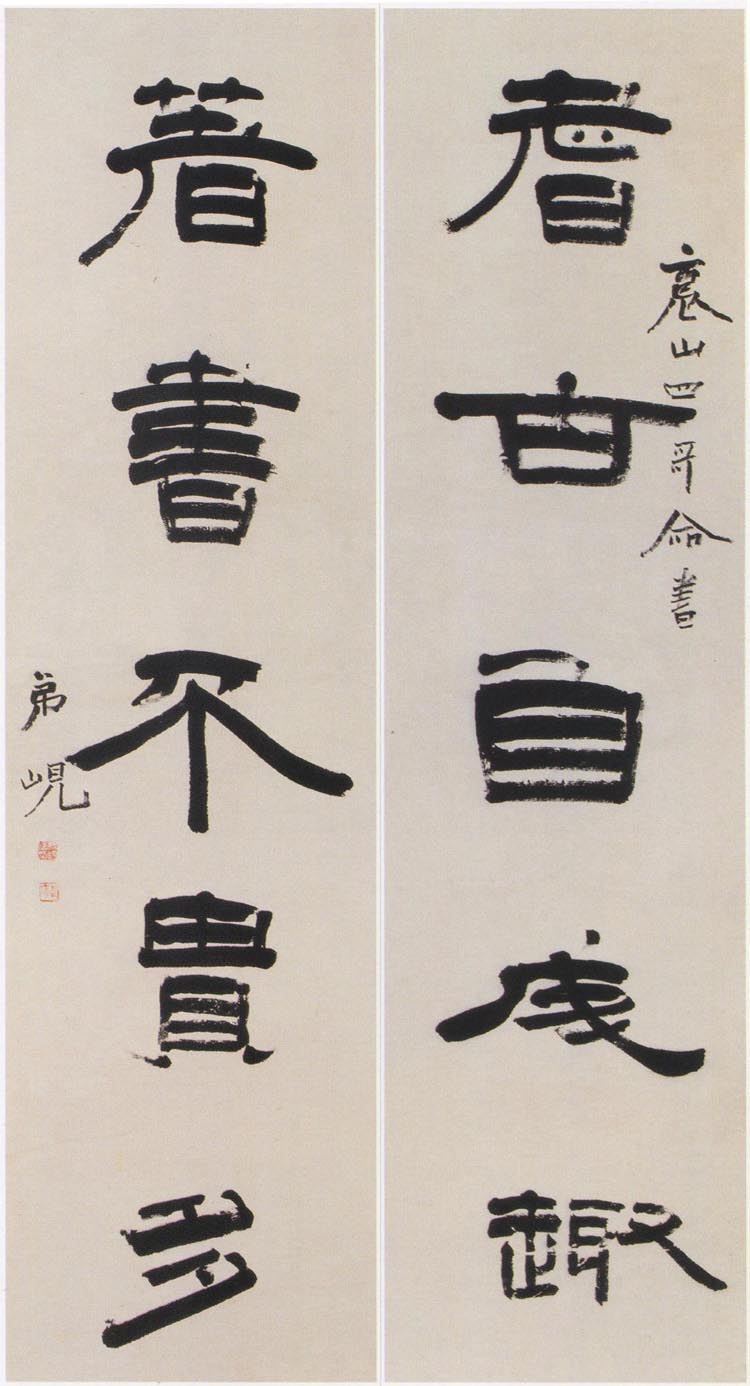 耆古自成趣
山四哥命書
著書不貴多
弟峴